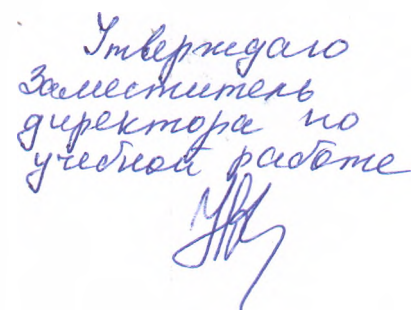 Утверждаю
Заместитель
директора по
учебной работе